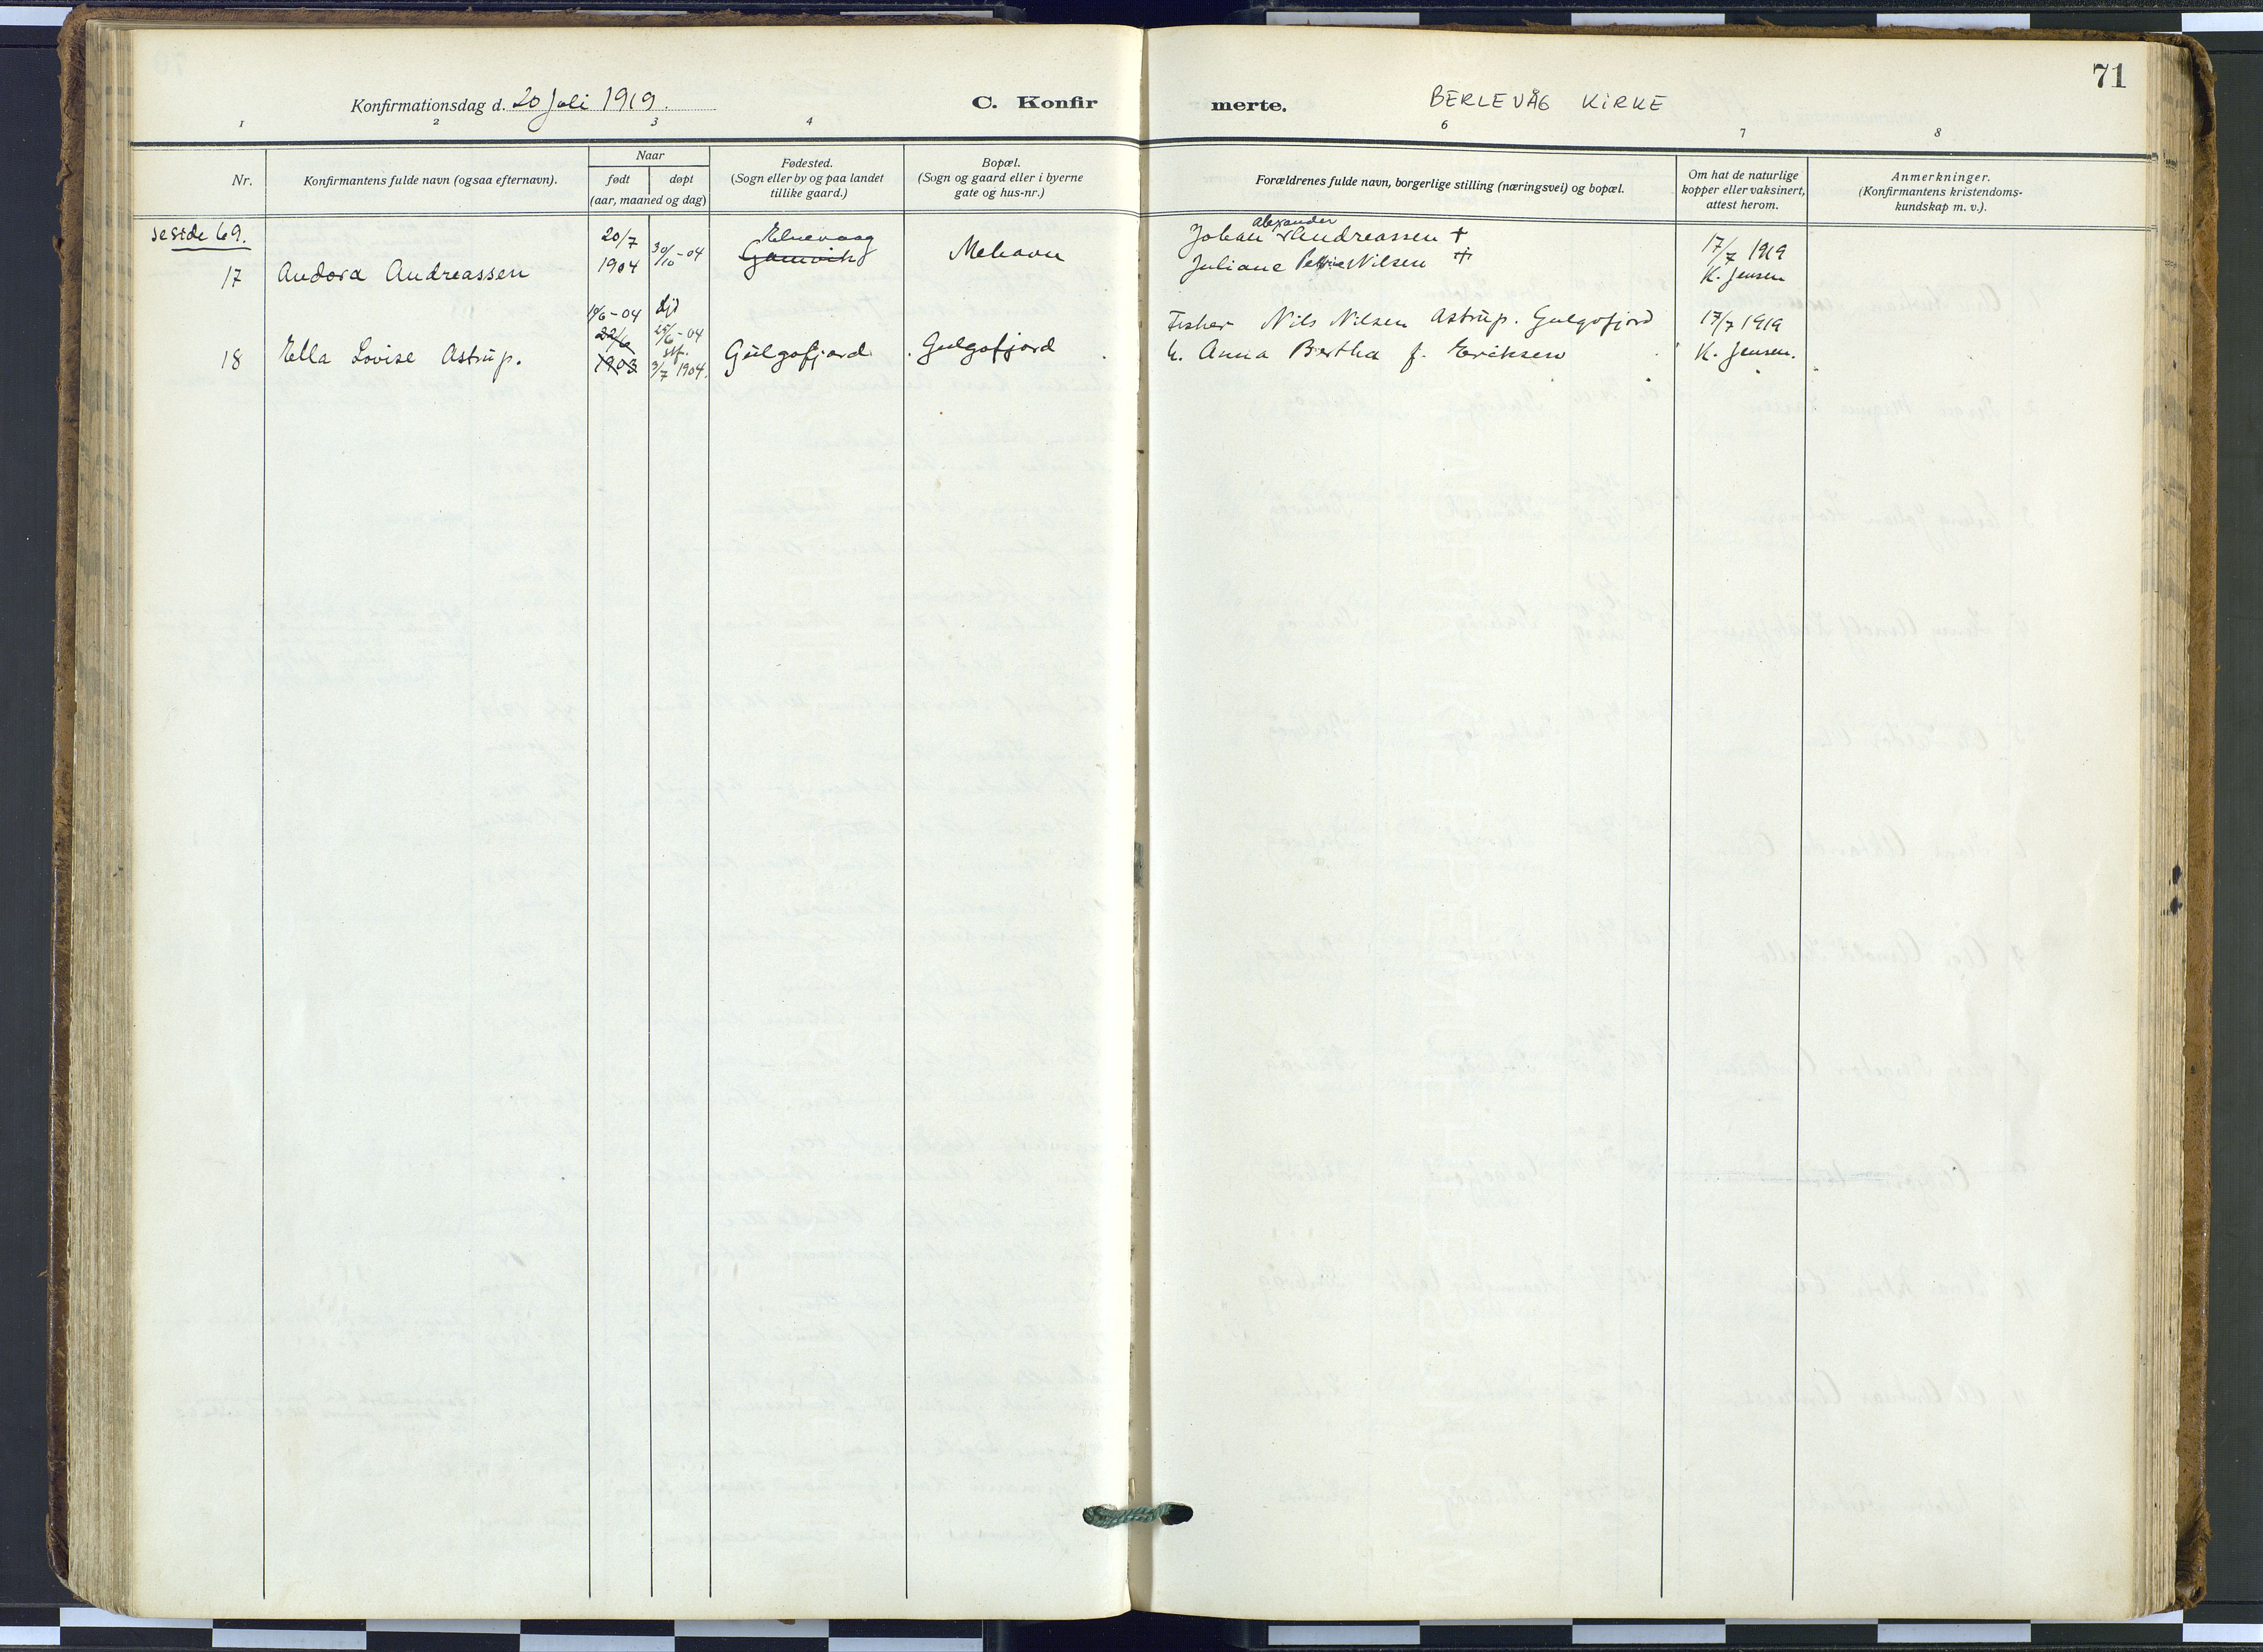 71
Konfirmationsdag d. 20 Juli 1919. C. Konfirmerte. BERLEVÅG KIRKE
1 2 3 4 6 7 8
Nr.
Konfirmantens fulde navn (ogsaa efternavn).
Naar
født døpt
(aar, maaned og dag)
Fødested.
(Sogn eller by og paa landet
tillike gaard.)
Bopæl.
(Sogn og gaard eller i byerne
gate og hus-nr.)
Forældrenes fulde navn, borgerlige stilling (næringsvei) og bopæl.
Om hat de naturlige
kopper eller vaksinert,
attest herom.
Anmerkninger.
(Konfirmantens kristendoms-
kundskap m. v.).
se side 69.
17 Andora Andreassen
20/7
1904
30/10-04
Gamvik
Mehavn
Johan Alexander Andreassen +
Juliane Nilsen +
17/7 1919
K. Jensen
18 Ella Lovise Astrup.
-04
22/6
1903
-04
3/7 1904.
Gulgofjord
Gulgofjord
Fisker Nils Nilsen Astrup. Gulgofjord
h. Anna Bertha f. Eriksen
17/7 1919
K. Jensen.